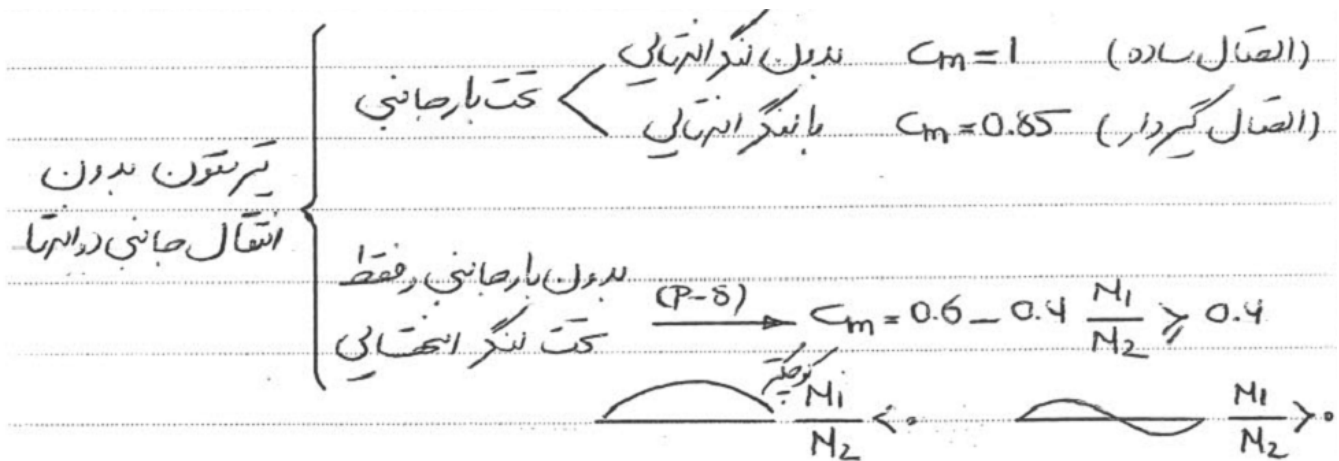 تیرستون بدون
انتقال جانبی دو انتها
تحت بار جانبی
بدون لنگر انتهایی Cm = 1 (اتصال ساده)
با لنگر انتهایی Cm = 0.85 (اتصال گیردار)
بدون بار جانبی و فقط
تحت لنگر انتهایی
(P-δ) → Cm = 0.6 - 0.4 M1/M2 ≥ 0.4
کوچکتر
M1/M2 < 0
M1/M2 > 0